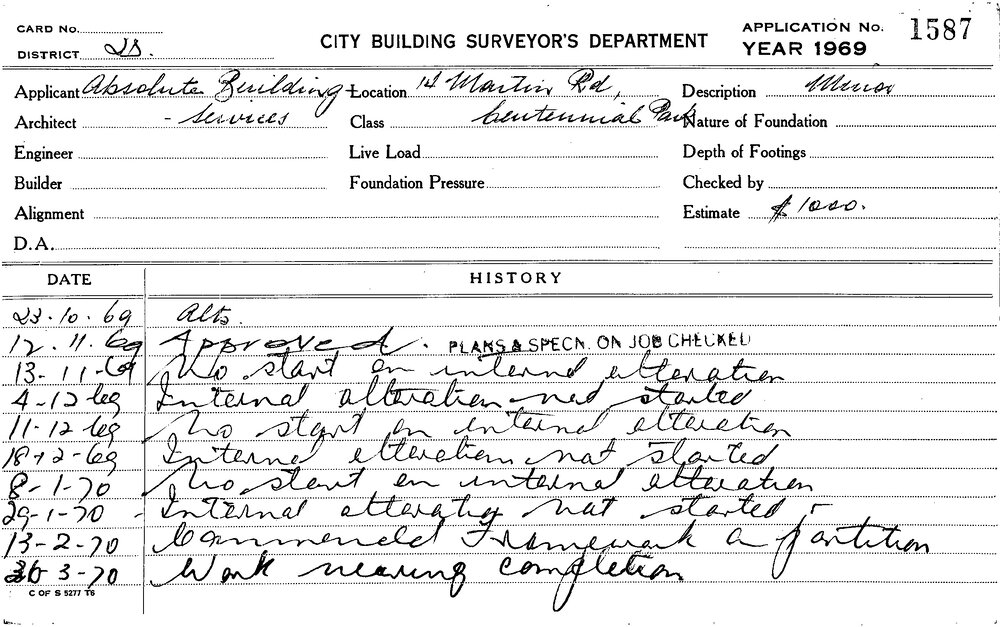 CARD No.
APPLICATION No. 1587
CITY BUILDING SURVEYOR'S DEPARTMENT
DISTRICT
YEAR 1969
Applicant Absolute Building Location 14 Martin Rd, Description Minor
Architect - Services Class Centennial Park Nature of Foundation
Engineer Live Load Depth of Footings
Builder Foundation Pressure Checked by
Alignment Estimate $1000.
D.A.
DATE HISTORY
23.10.69 Alts.
12.11.69 Approved. PLANS & SPECN. ON JOB CHECKED
13-11-69 No start on internal alteration
4-12-69 Internal alteration not started
11-12-69 No start on internal alteration
18-12-69 Internal alteration not started
8-1-70 No start on internal alteration
29-1-70 - Internal alteration not started -
13-2-70 Commenced Framework on partition
3-70 Work nearing completion
C OF S 5277 T6